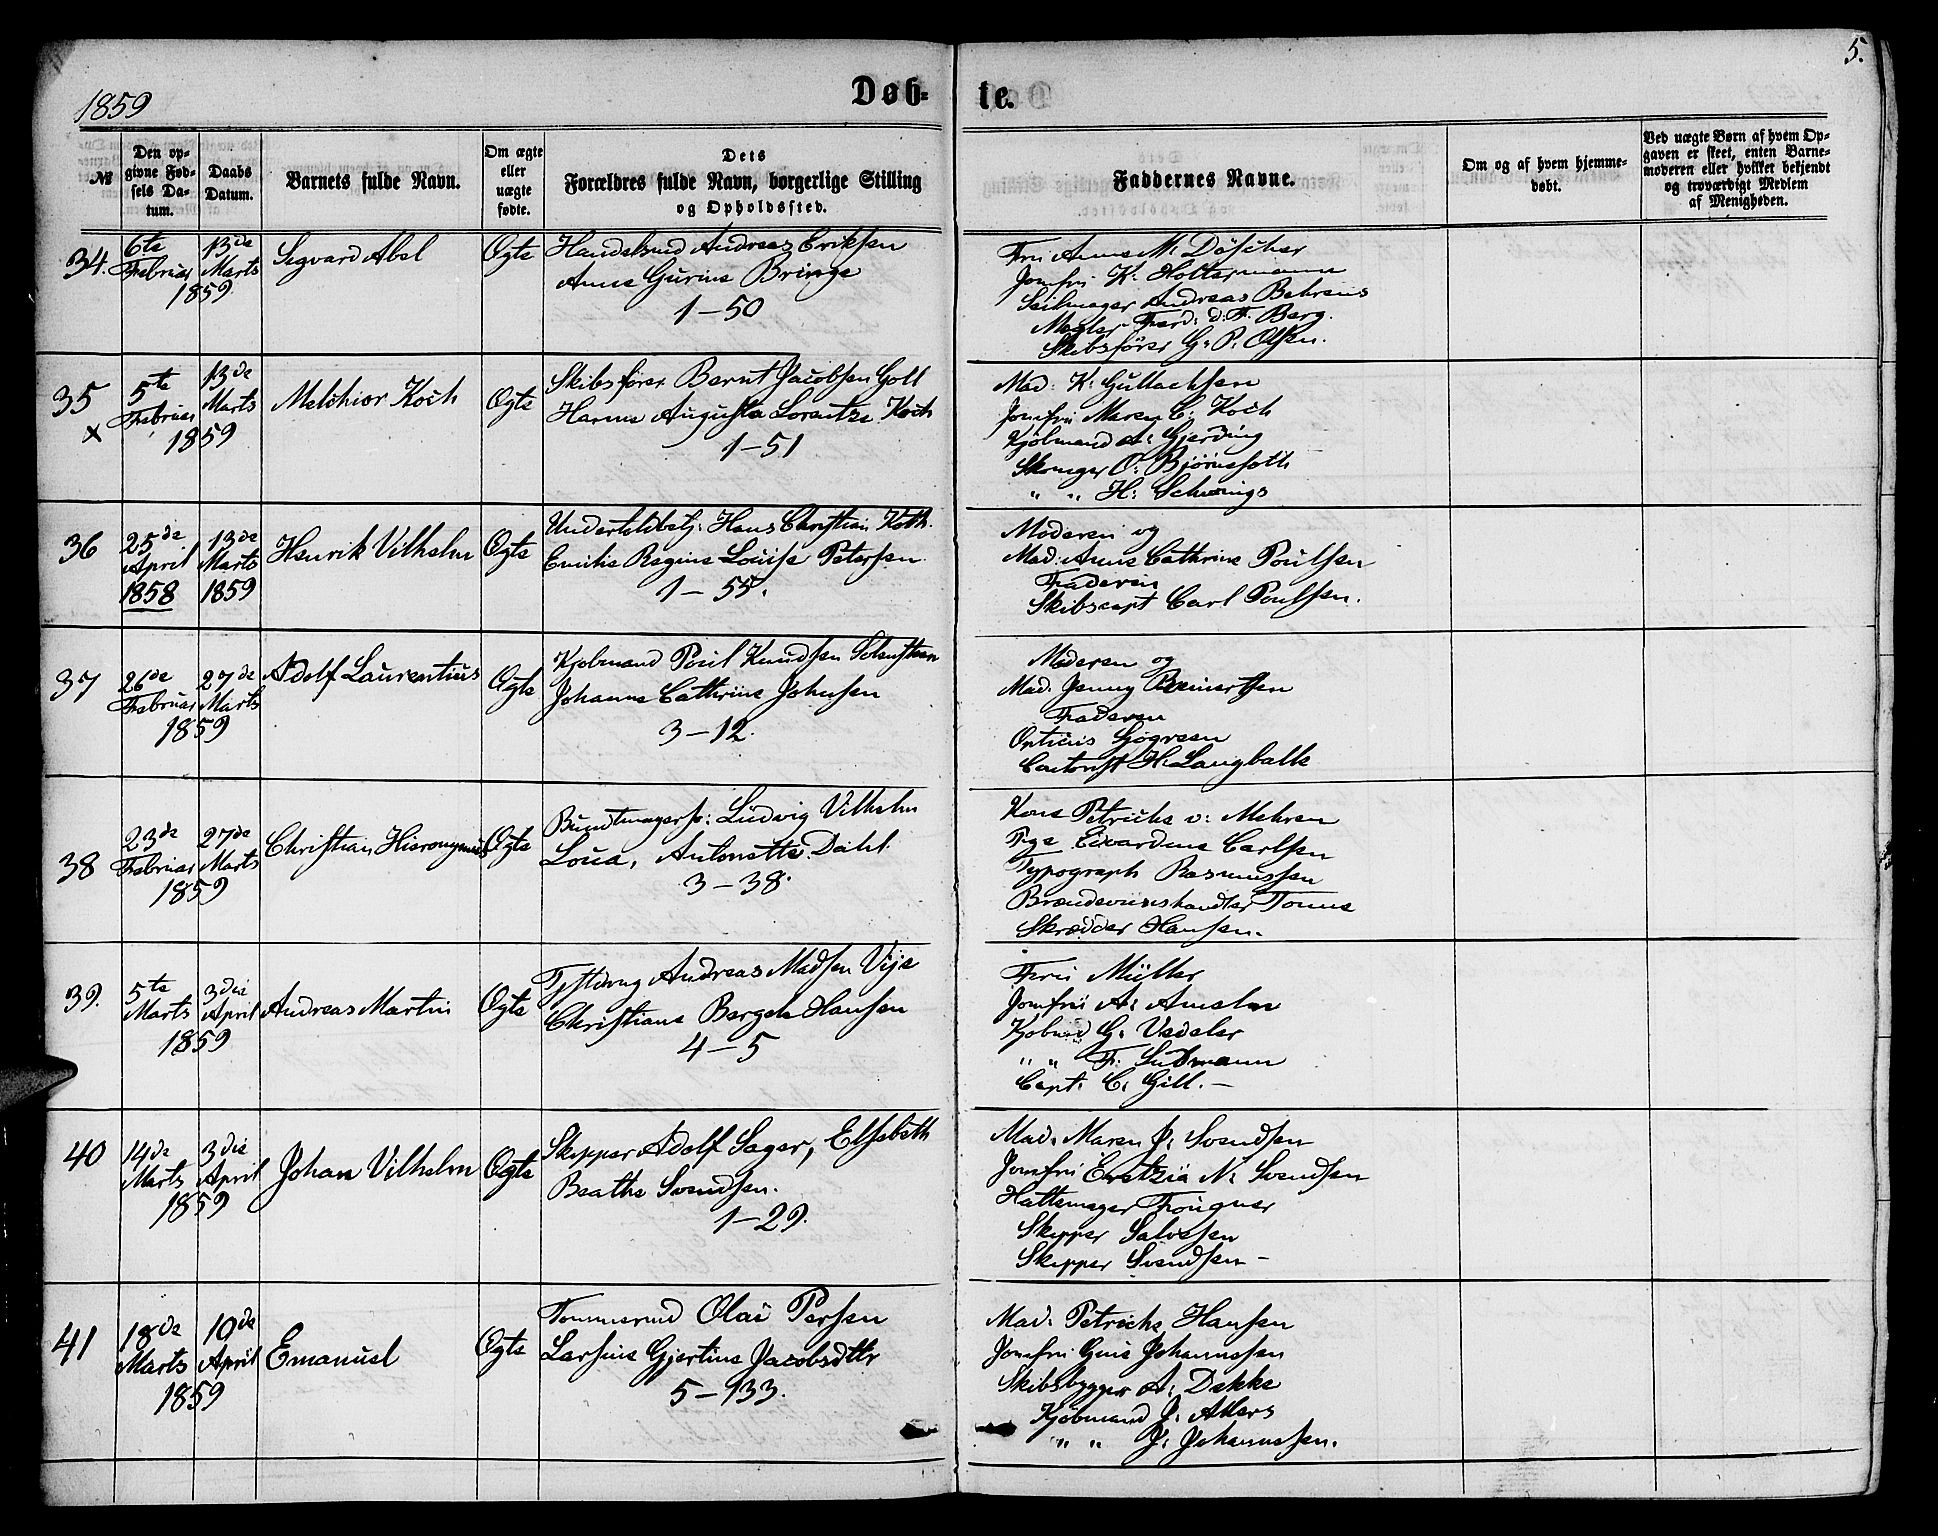 5.
1859
Døb-
te.
№
Den op-
givne Fød-
sels Da-
tum.
Daabs
Datum.
Barnets fulde Navn.
Om ægte
eller
uægte
fødte.
Dets
Forældres fulde Navn, borgerlige Stilling
og Opholdssted.
Faddernes Navne.
Om og af hvem hjemme-
døbt.
Ved uægte Børn af hvem Op-
gaven er skeet, enten Barne-
moderen eller hvilket bekjendt
og troværdigt Medlem
af Menigheden.
34.
6te
Februar
13de
Marts
1859
Segvard Abel
Ægte
Handelsmd Andreas Eriksen
Anne Gurine Bringe
1-50
Fru Anne M. Döscher
Jomfru K. Holtermann
Seilmager Andreas Behrens
Mægler Ferd. d. F. Berg.
Skibsfører G. P. Olsen.
35
x
5te
Februar
13de
Marts
1859
Melchior Koch
Ægte
Skibsfører Bernt Jacobsen Goll
Hanne Augusta Lorentze Koch
1-51
Mad: K: Gullachsen
Jomfru Maren C. Koch
Kjøbmand A: Gjerding
Skomager O: Bjørnsfoth
" " H: Schwings
36
25de
April
1858
13de
Marts
1859
Henrik Vilhelm
Ægte
Undertoldbetj: Hans Christian Koth.
Emilie Regine Louise Petersen
1-55.
Moderen og
Mad: Anne Cathrine Poulsen
Faderen
Skibscapt Carl Poulsen.
37
26de
Februar
27de
Marts
1859
Adolf Laurentius
Ægte
Kjøbmand Poul Knudsen
Johanne Cathrine Johnsen
3-12.
Moderen og
Mad. Jenny Reinertsen
Faderen
Opticus Sjøgreen
H. Langballe
38
23de
Februar
27de
Marts
1859
Christian Hieronymus
Ægte
Buntmagersv: Ludvig Vilhelm
Loua, Antonette Dahl.
3-38.
Kone Petriche v: Mehren
Pige Edvardine Carlsen
Typograph Rasmussen
Brændeviinshandler Tonne
Skrædder Hansen.
39.
5te
Marts
3die
April
1859
Andreas Martin
Ægte
Andreas Madsen Vije
Christiane Bergete Hansen
4-5
Fru Müller
Jomfru A: Ameln
Kjøbmd G. Vedeler
" " F: Sudmann
Capt: C. Gill. -
40
14de
Marts
3die
April
1859
Johan Vilhelm
Ægte
Skipper Adolf Sager, Elsebeth
Beathe Svendsen.
1-29.
Mad. Maren J. Svendsen
Jomfru N. Svendsen
Hattemager Frougner
Skipper Salvesen
Skipper Svendsen -
41
18de
Marts
10de
April
1859
Emanuel
Ægte
Tømmermd Olai Persen
Larsine Gjertine Jacobsdttr
5-133.
Mad. Petriche Hansen
Jomfru Gine Johannessen
Skibsbygger A. Dekke
Kjøbmand J. Allers
" " J. Johannessen.